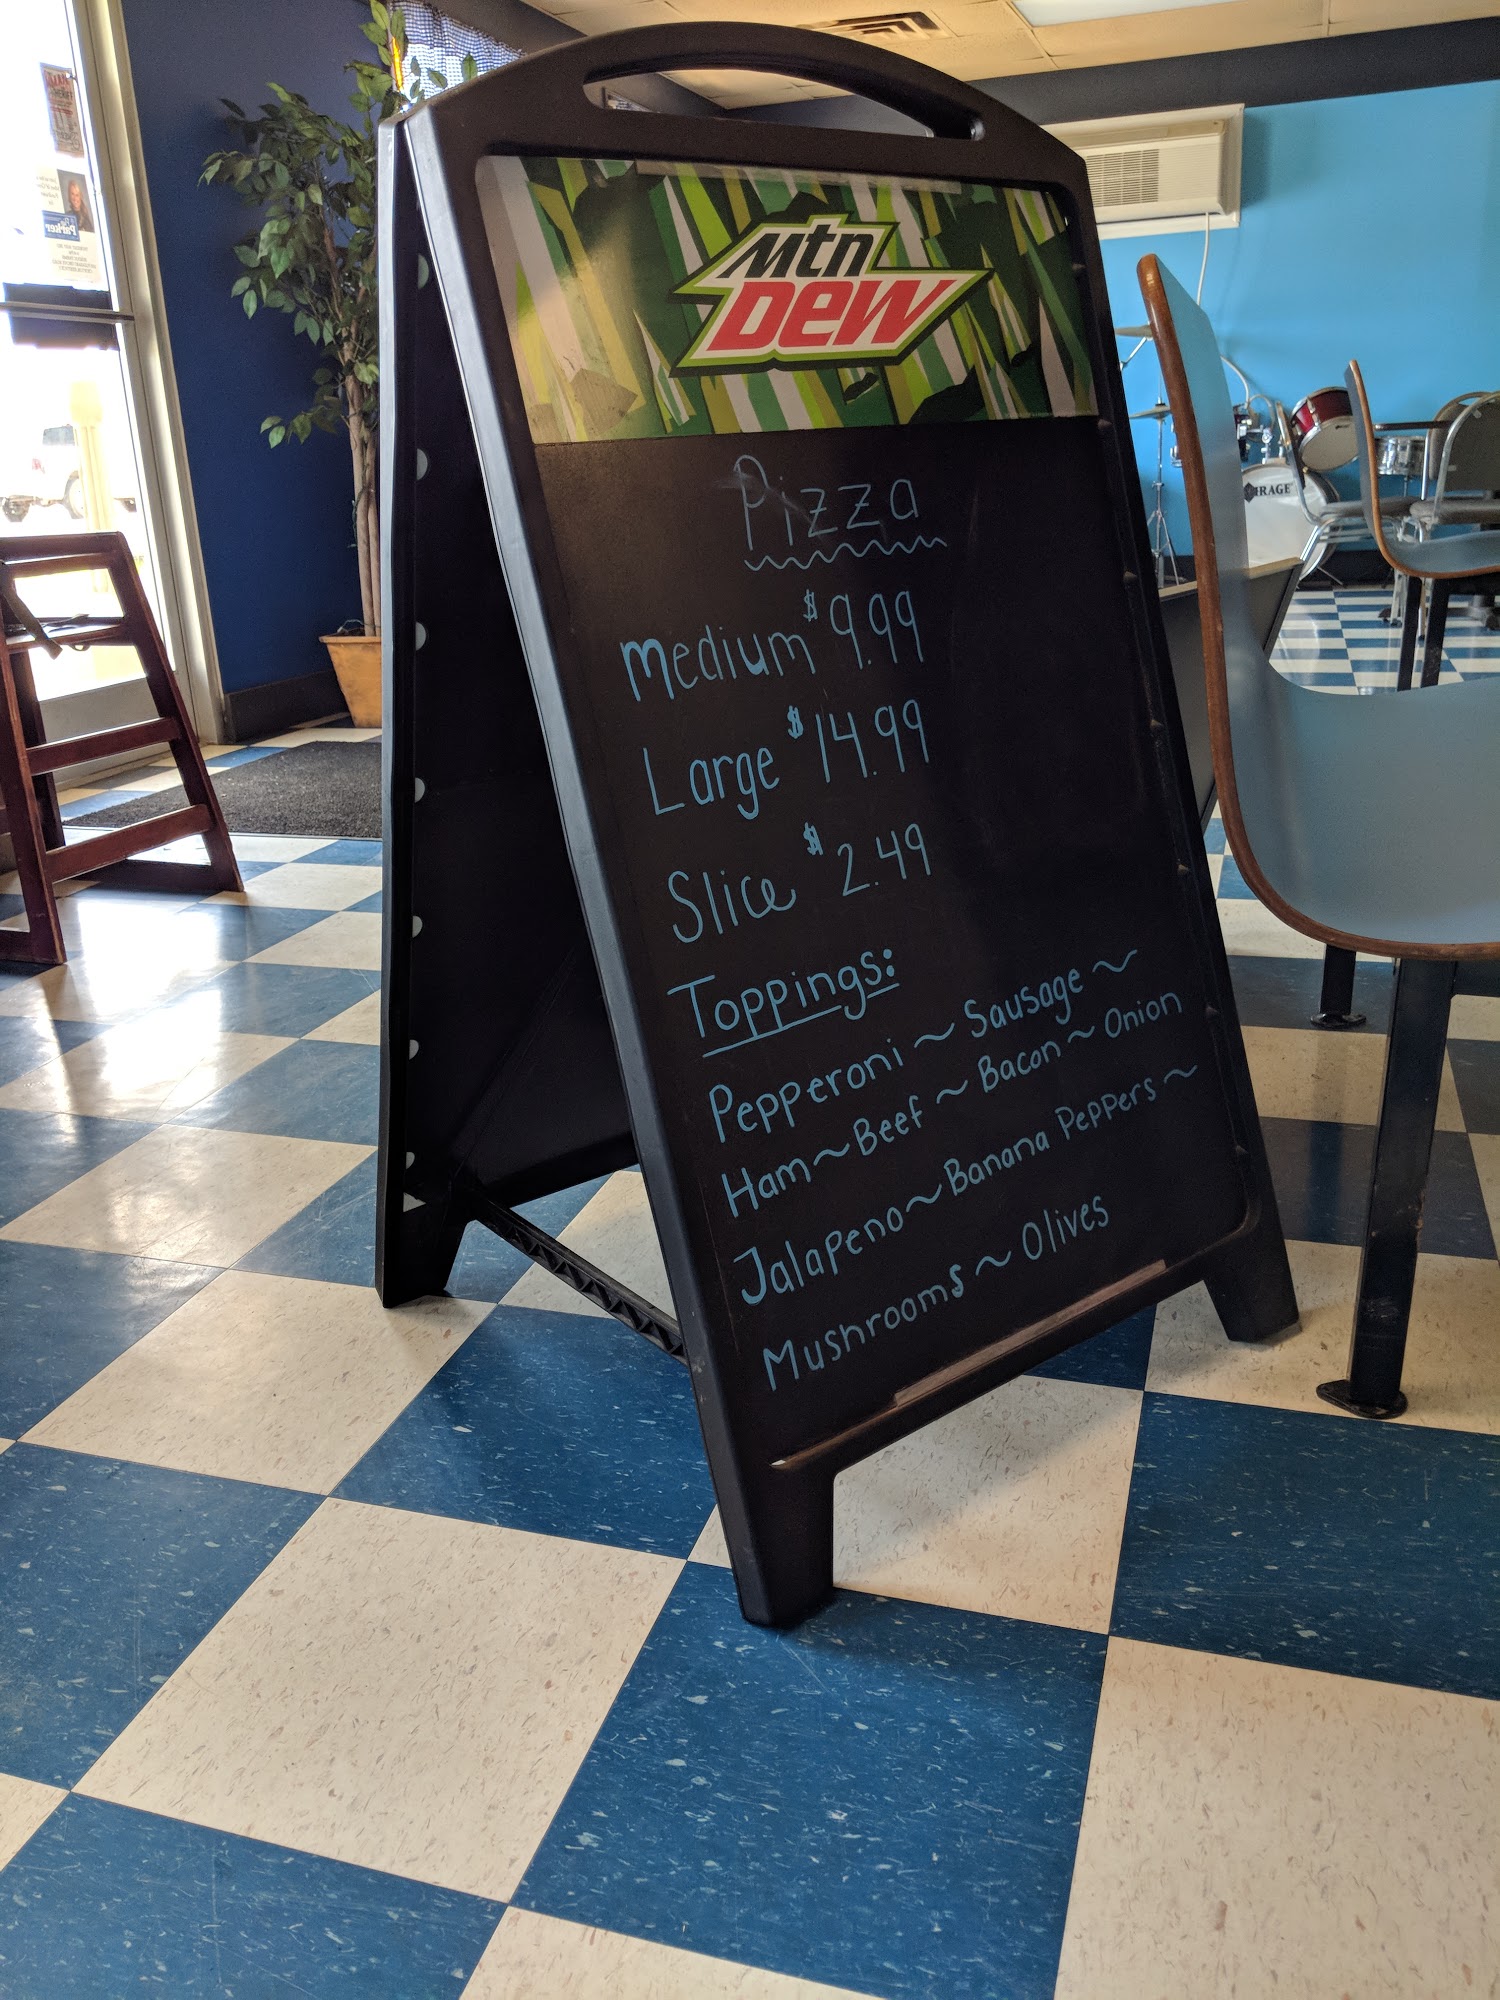 Mtn
DEW
Pizza
Medium $9.99
Large $14.99
Slice $2.49
Toppings:
Pepperoni ~ Sausage ~
Ham ~ Beef ~ Bacon ~ Onion
Jalapeno ~ Banana Peppers ~
Mushrooms ~ Olives
Parker